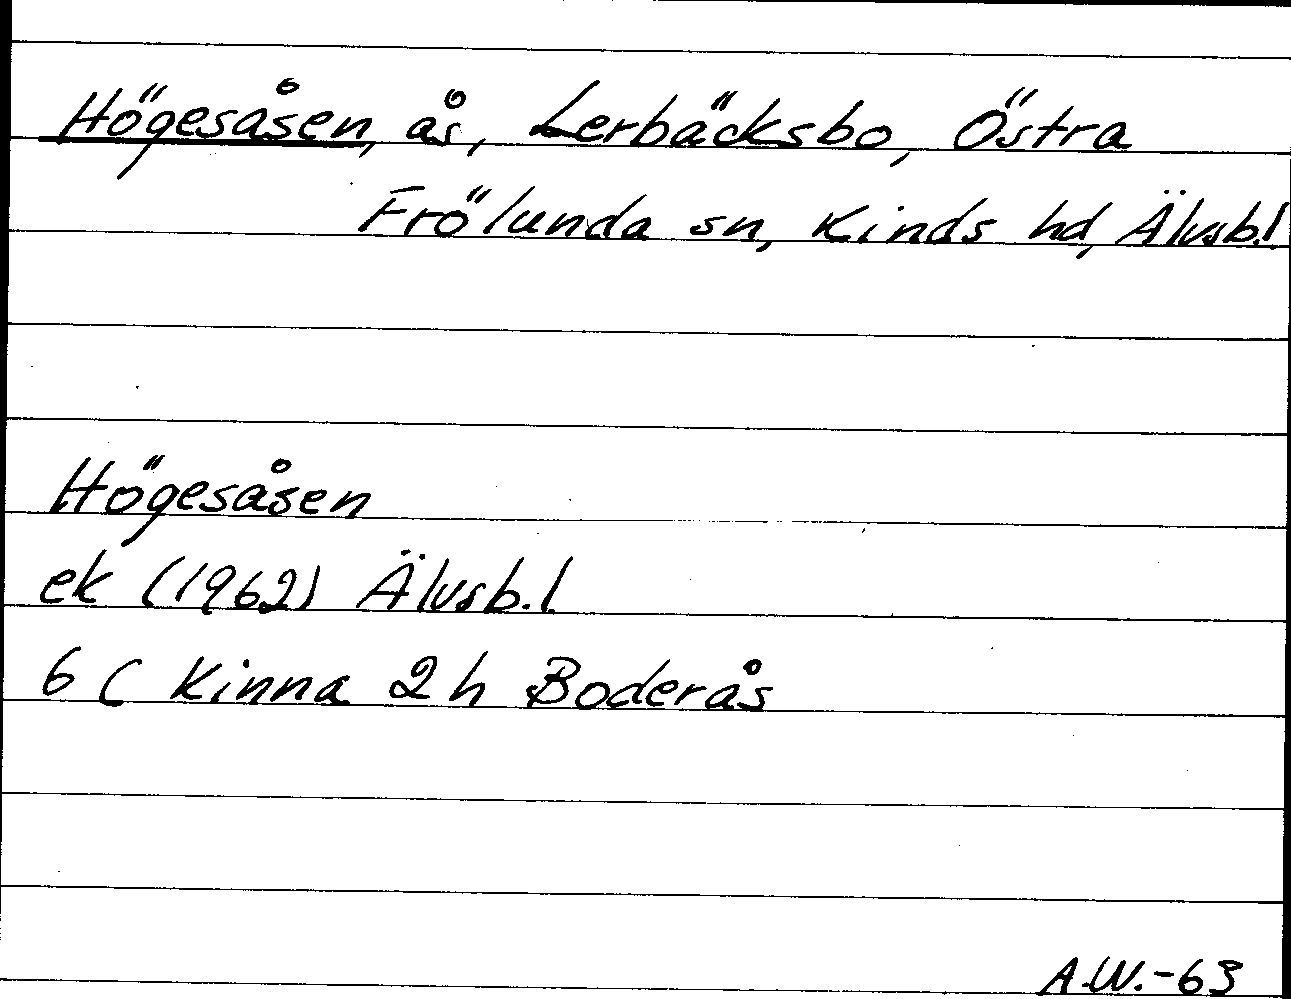 Högesåsen, ås, Lerbäcksbo, Östra
Frölunda sn, Kinds hd, Älvsb.l
Högesåsen
ek (1962) Älvsb.l.
6 C Kinna 2 h Boderås
A.W.-63